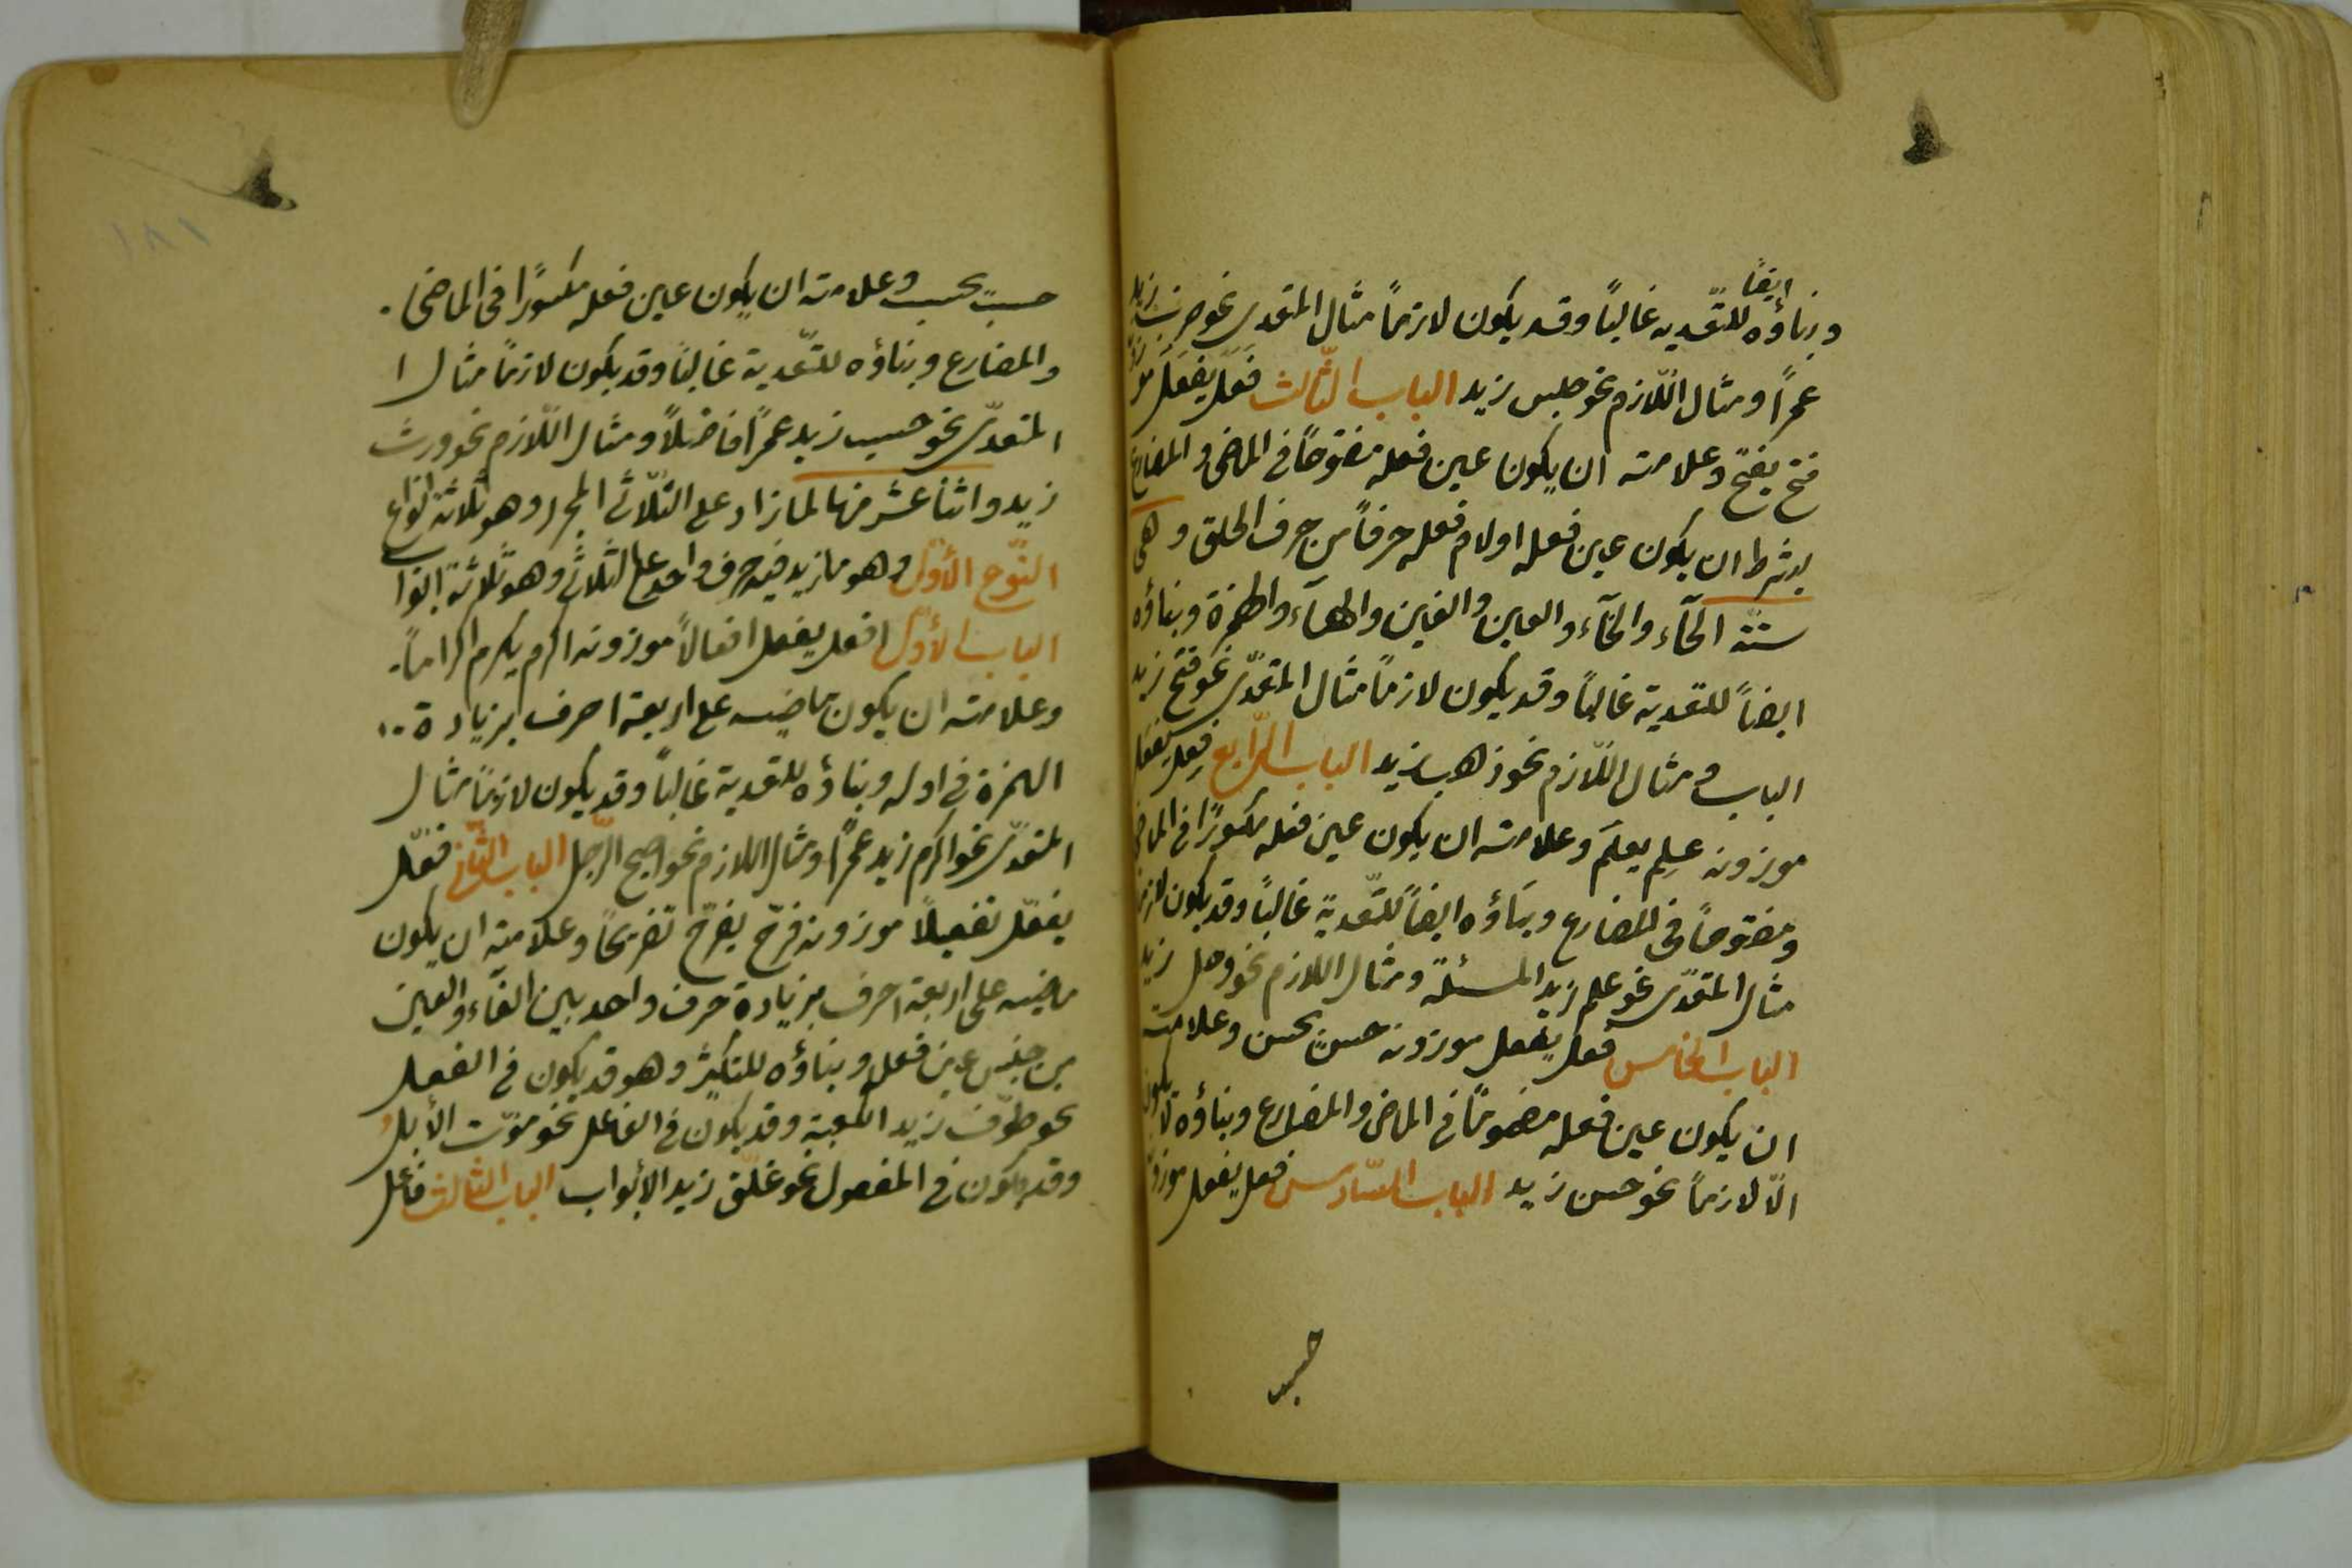 وبناؤه ايضًا للتّعديه غالبًا وقد يكون لازمًا مثال المتعدى نحو ضرب زيد
عمرًا ومثال اللّازم نحو جلس زيد الباب الثّالث فَعَل يَفعَل موزونه
فتح يفتح وعلامته ان يكون عين فعله مفتوحًا فى الماضى والمضارع
بشرط ان يكون عين فعله او لام فعله حرفًا من حرف الحلق وهى
ستة الحآء والخآء والعين والغين والهآء والهمزة وبناؤه
ايضًا للتعدية غالبًا وقد يكون لازمًا مثال المتعدّى نحو فتح زيد
الباب ومثال اللّازم نحو ذهب زيد الباب الرّابع فعِل يفعَل
موزونه علِم يعلَم وعلامته ان يكون عين فعله مكسورًا فى الماضى
ومفتوحًا فى المضارع وبناؤه ايضًا للتّعدية غالبًا وقد يكون لازمًا
مثال المتعدّى نحو علم زيد المسئلة ومثال اللازم نحو وجل زيد
الباب الخامس فعل يفعل موزونه حسن يحسن وعلامته
ان يكون عين فعله مضمومًا فى الماضى والمضارع وبناؤه لا يكون
الّا لازمًا نحو حسن زيد الباب السّادس فعل يفعل موزونه
حسب
١٨١
حسب يحسب وعلامته ان يكون عين فعله مكسورًا فى الماضى.
والمضارع وبناؤه للتّعدية غالبًا وقد يكون لازمًا مثال ا
المتعدّى نحو حسب زيد عمرًا فاضلًا ومثال اللّازم نحو ورث
زيد واثنا عشر منها لما زاد على الثّلاثى المجرد وهو ثلاثة انواع
النّوع الأوّل وهو ما زيد فيه حرف واحد على الثلاثى وهو ثلاثة ابواب
الباب الأوّل افعل يفعل افعالًا موزونه اكرم يكرم اكرامًا.
وعلامته ان يكون ماضيه على اربعة احرف بزيادة..
الهمزة فى اوله وبناؤه للتعدية غالبًا وقد يكون لازمًا مثال
المتعدّى نحو اكرم زيد عمرًا ومثال اللازم نحو اصبح الرّجل الباب الثّانى فعّل
يفعّل تفعيلًا موزونه فرّح يفرّح تفريحًا وعلامته ان يكون
ماضيه على اربعة احرف بزيادة حرف واحد بين الفآء والعين
من جنس عين فعله وبناؤه للتكثير وهو قد يكون فى الفعل
نحو طوّف زيد الكعبة وقد يكون فى الفاعل نحو موّت الأبل
وقد يكون فى المفعول نحو غلّق زيد الأبواب الباب الثالث فاعل